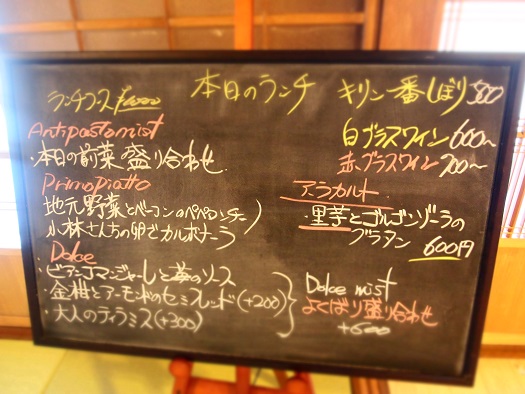 本日のランチ
ランチコース
Antipastomist
・本日の前菜盛り合わせ
Primopiatto
地元野菜とベーコンのペペロンチーノ
小林さんちの卵でカルボナーラ
Dolce
・ビアンコマンジャーレと苺のソース
・金柑とアーモンドのセミフレッド(+200)
・大人のティラミス(+300)
キリン一番しぼり500
白グラスワイン600~
赤グラスワイン700~
アラカルト
・里芋とゴルゴンゾーラの
グラタン 600円
Dolce mist
よくばり盛り合わせ
+600